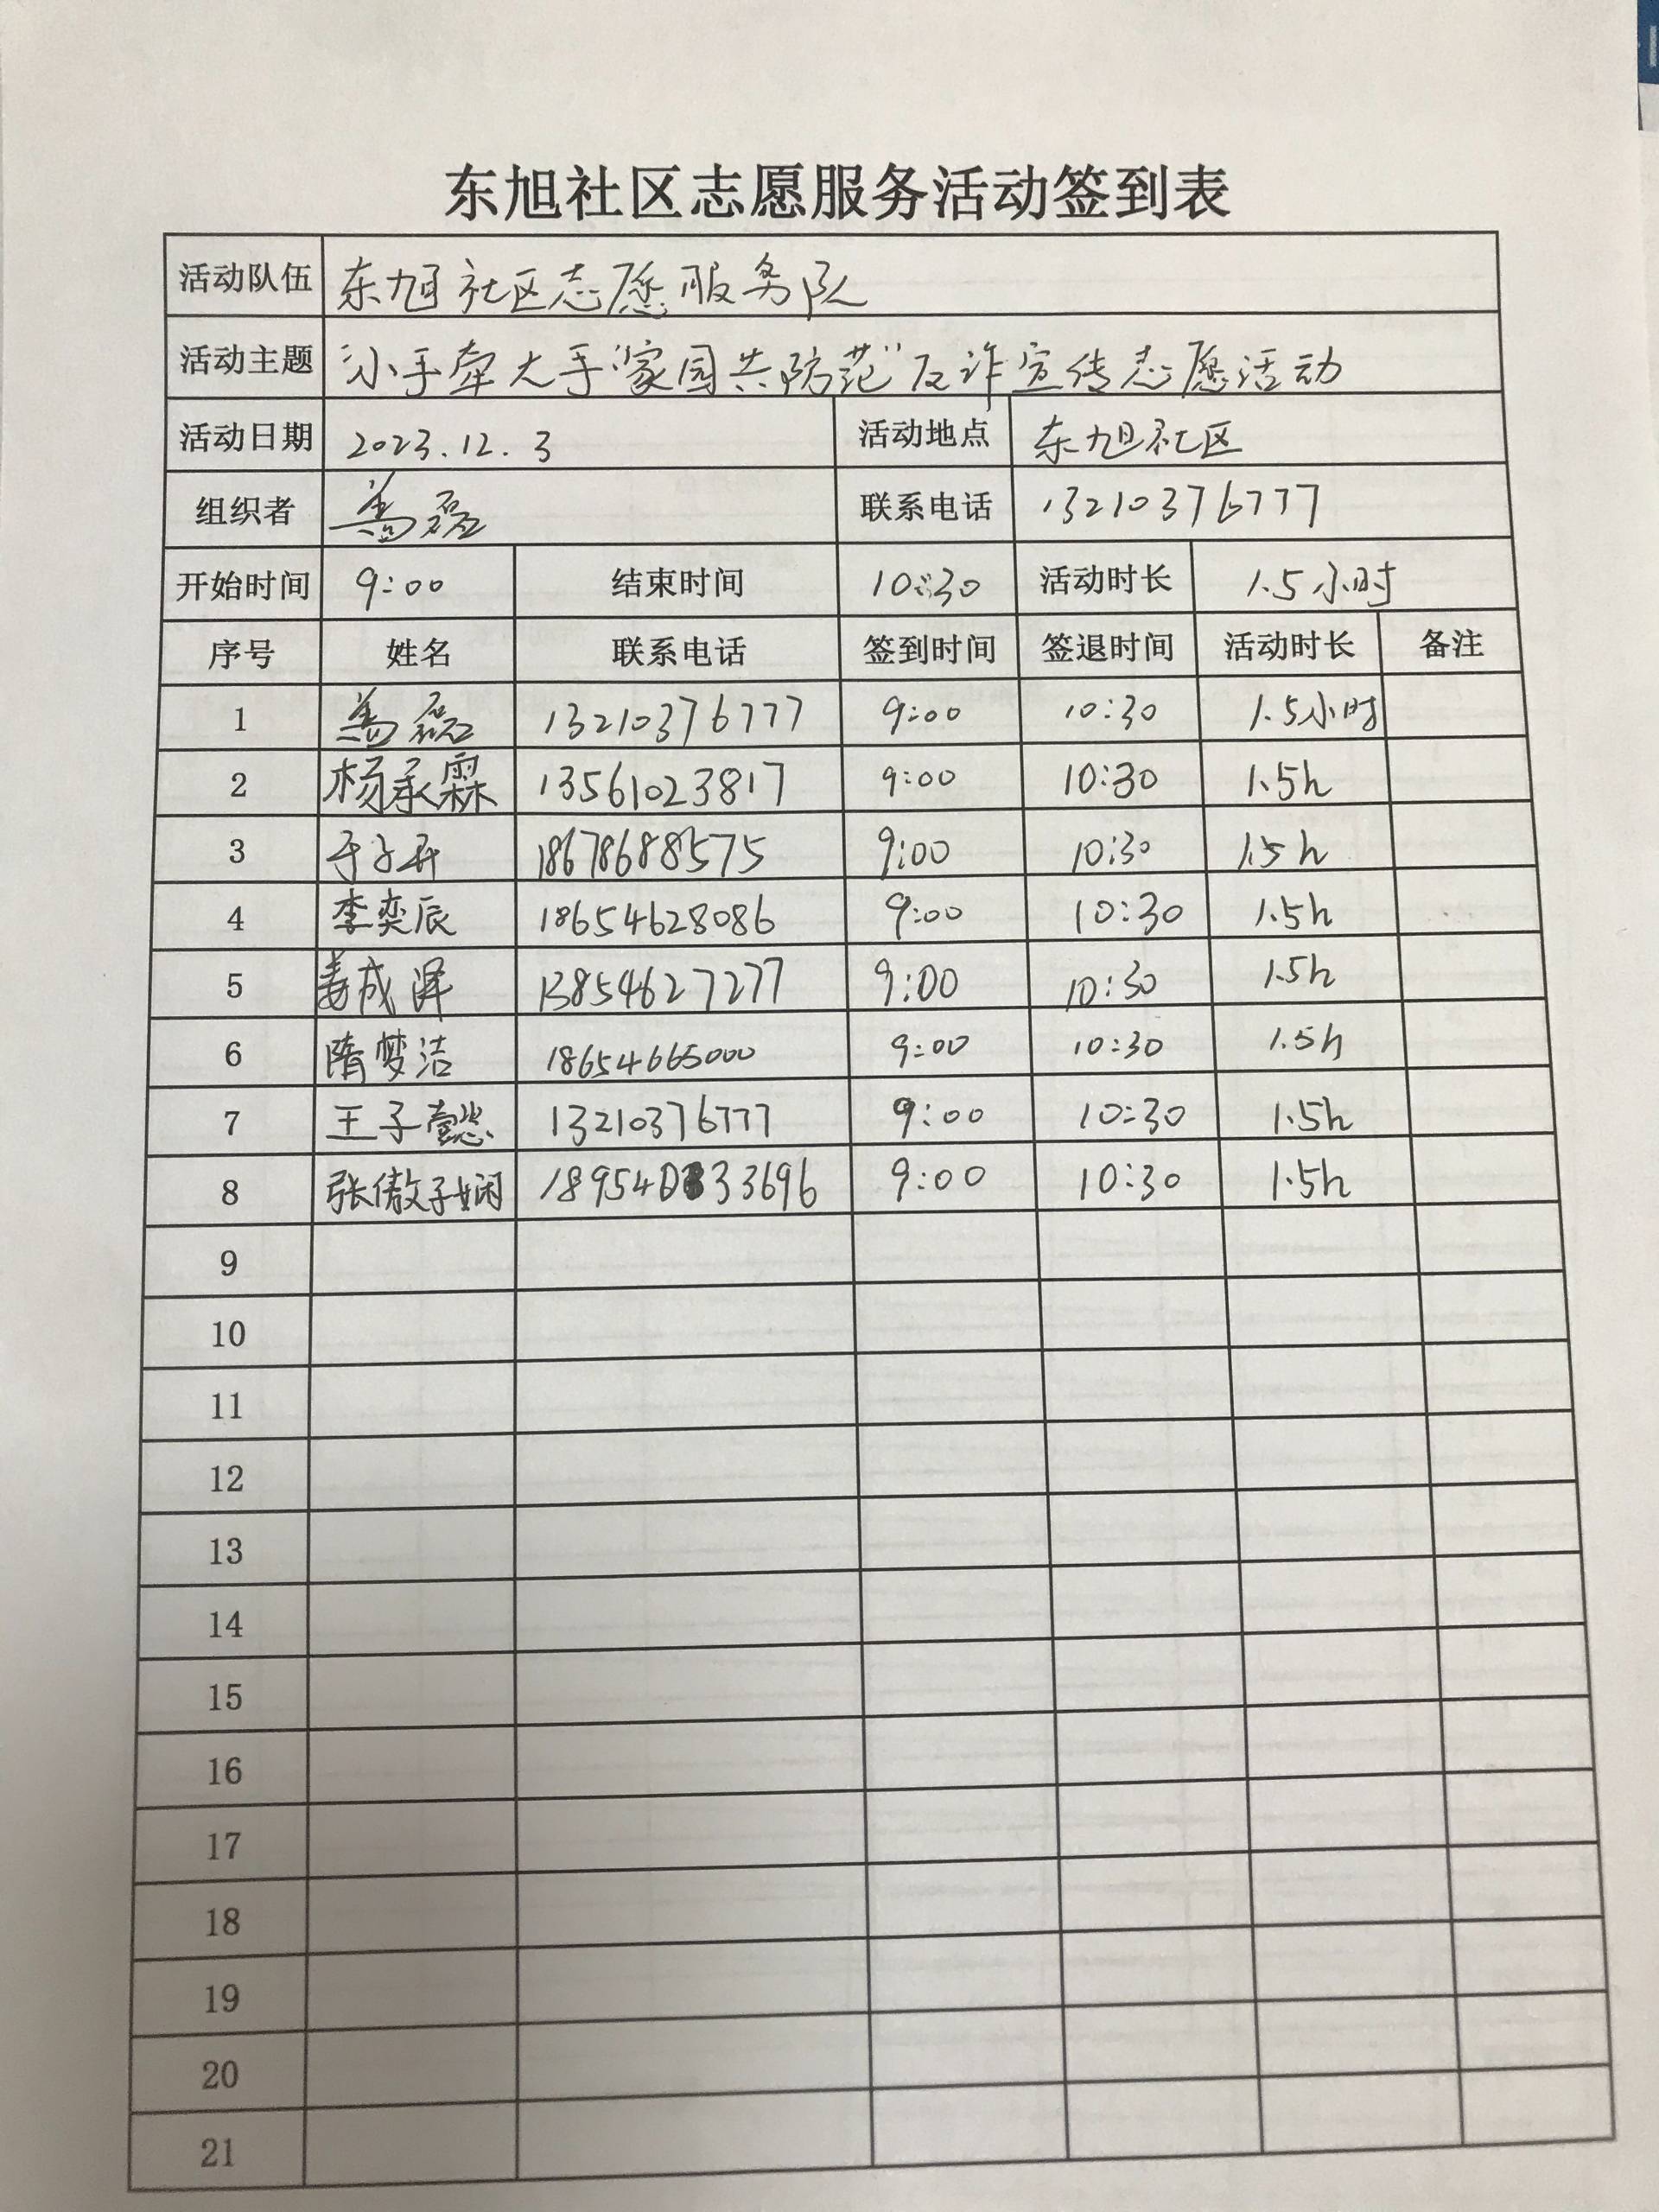 东旭社区志愿服务活动签到表
活动队伍 东旭社区志愿服务队
活动主题 “小手牵大手 家园共防范”反诈宣传志愿活动
活动日期 2023.12.3 活动地点 东旭社区
组织者 盖磊 联系电话 13210376777
开始时间 9:00 结束时间 10:30 活动时长 1.5小时
序号 姓名 联系电话 签到时间 签退时间 活动时长 备注
1 盖磊 13210376777 9:00 10:30 1.5小时
2 杨承霖 13561023817 9:00 10:30 1.5h
3 于子 18678688575 9:00 10:30 1.5h
4 李奕辰 18654628086 9:00 10:30 1.5h
5 姜成泽 13854627277 9:00 10:30 1.5h
6 隋梦洁 18654665000 9:00 10:30 1.5h
7 王子懿 13210376777 9:00 10:30 1.5h
8 张傲子娴 9:00 10:30 1.5h
9
10
11
12
13
14
15
16
17
18
19
20
21